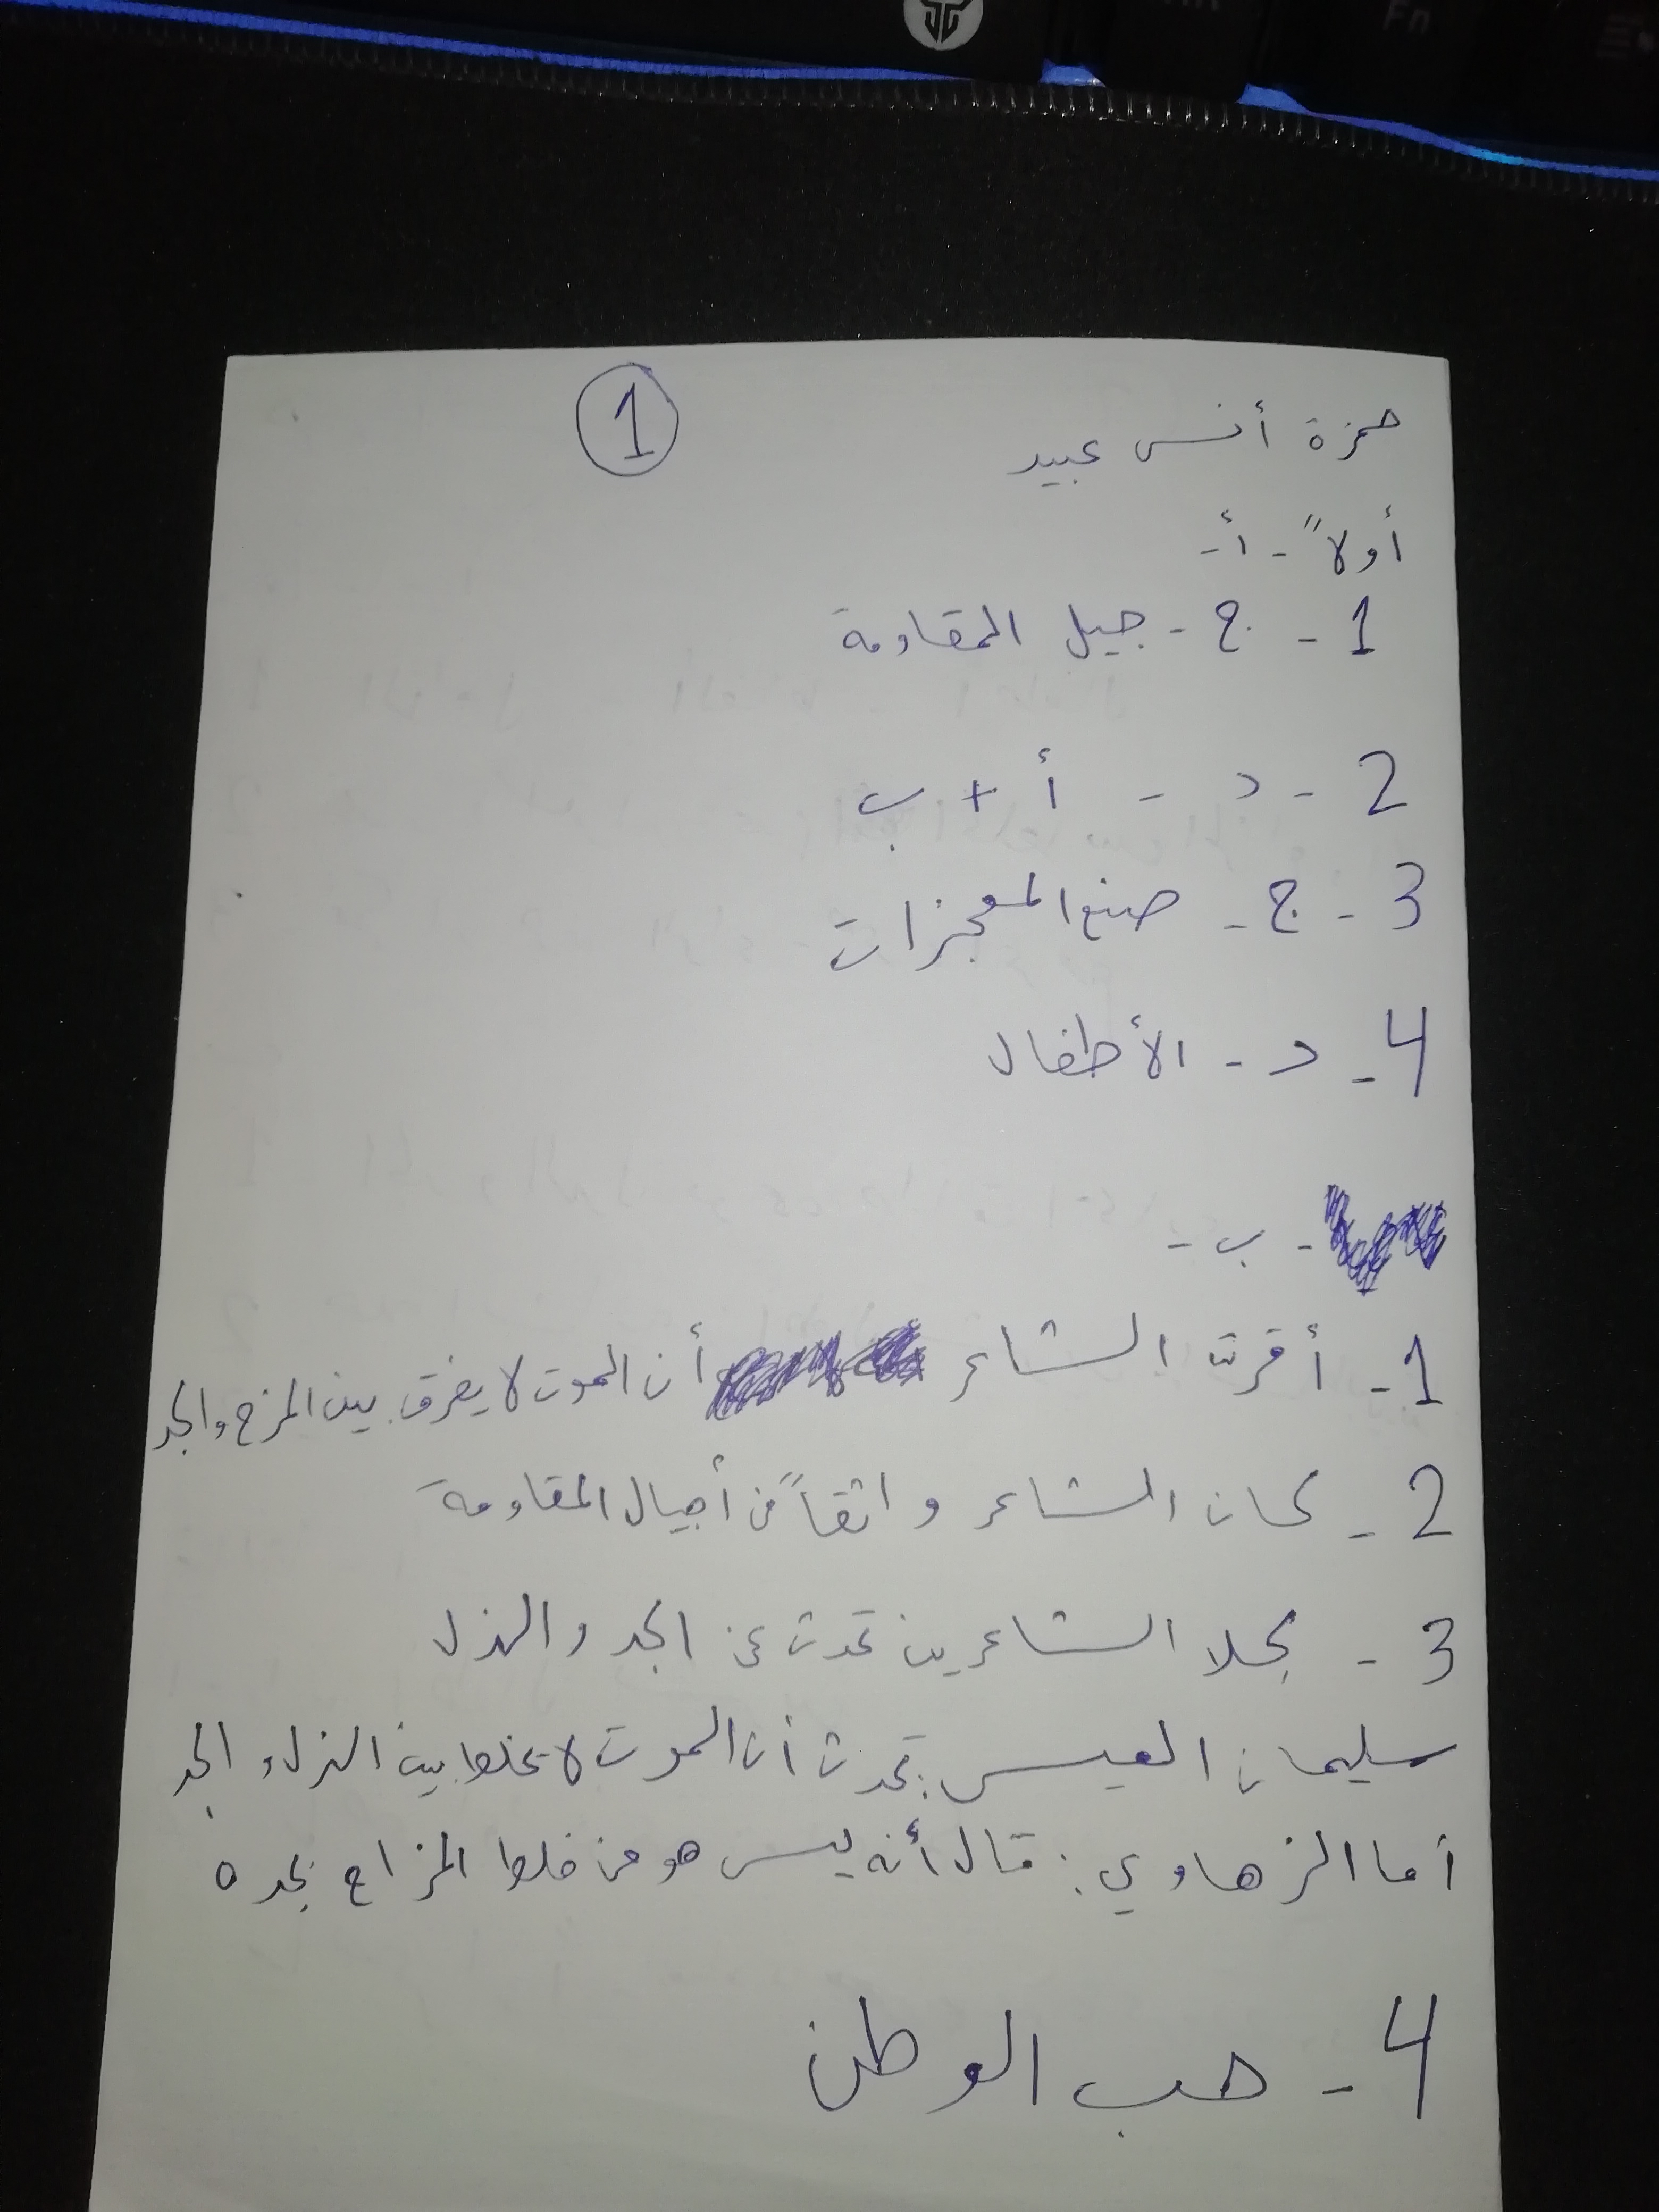 Fn
1
حمزة أنس عبيد
أولاً - أ -
1 - ج - جيل المقاومة
2 - د - أ + ب
3 - ج - صنع المعجزات
4 - د - الأطفال
- ب -
1 - أقرت الشاعر أن الموت لا يفرق بين المزح والجد
2 - كان الشاعر واثقاً من أجيال المقاومة
3 - كلا الشاعرين تحدث عن الجد والهزل
سليمان العيسى: تحدث أن الموت لا يخلط بين الهزل و الجد
أما الزهاوي: قال أنه ليس هو من خلط المزاح بجده
4 - حب الوطن